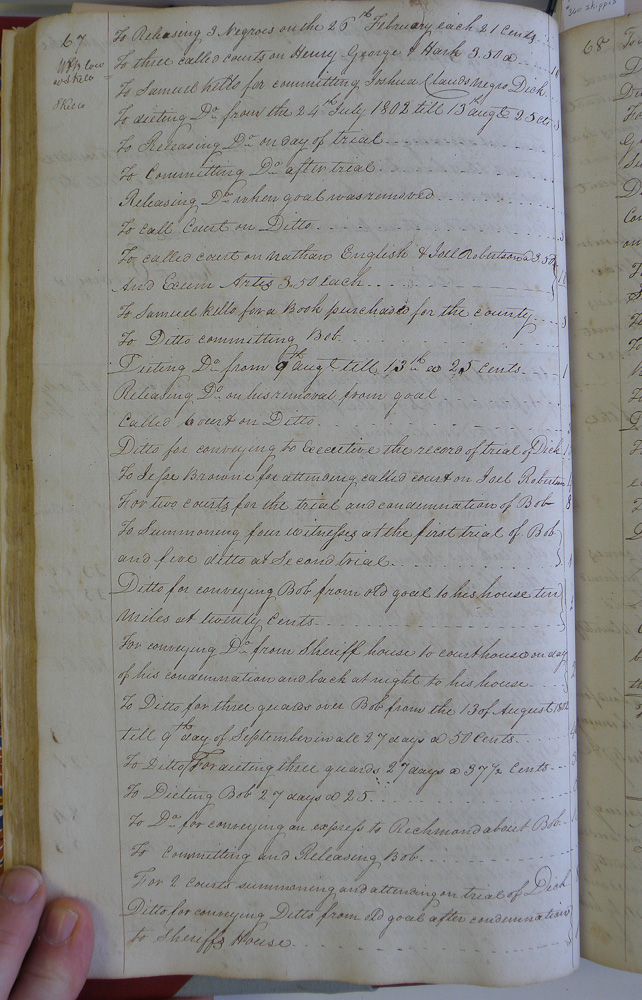 67
To Releasing 3 Negroes on the 25th February each 21 Cents
To three called courts on Henry George & Hark 3.50 a
To Samuel Kello for committing Joshua Clauds negro Dick
To dieting Do from the 24th July 1802 till 13th augt @ 25 cts
To Releasing Do on day of trial
To Committing Do after trial
Releasing Do when goal was removed
To call Court on Ditto
To called court on Nathan English & Joel Robertson @ 3.50
And Exum Artis 3.50 each
To Samuel Kello for a Book purchased for the county
To Ditto committing Bob
Dieting Do from 9th augt till 13th @ 25 cents
Releasing Do on his removal from goal
Called Court on Ditto
Ditto for conveying to Executive the record of trial of Dick
To Jesse Browne for attending called court on Joel Robertson
For two courts for the trial and condemnation of Bob
To Summoning four witnesses at the first trial of Bob
and five ditto at Second trial
Ditto for conveying Bob from old goal to his house ten
miles at twenty Cents
For conveying Do from Sheriff house to courthouse on day
of his condemnation and back at night to his house
To Ditto for three guards over Bob from the 13 of August 1802
till 9th day of September in all 27 days @ 50 Cents
To Ditto For dieting three guards 27 days @ 37½ Cents
To Dieting Bob 27 days @ 25
To Do for conveying an express to Richmond about Bob
To Committing and Releasing Bob
For 2 Courts summoning and attending on trial of Dick
Ditto for conveying Ditto from old goal after condemnation
to Sheriffs House
68